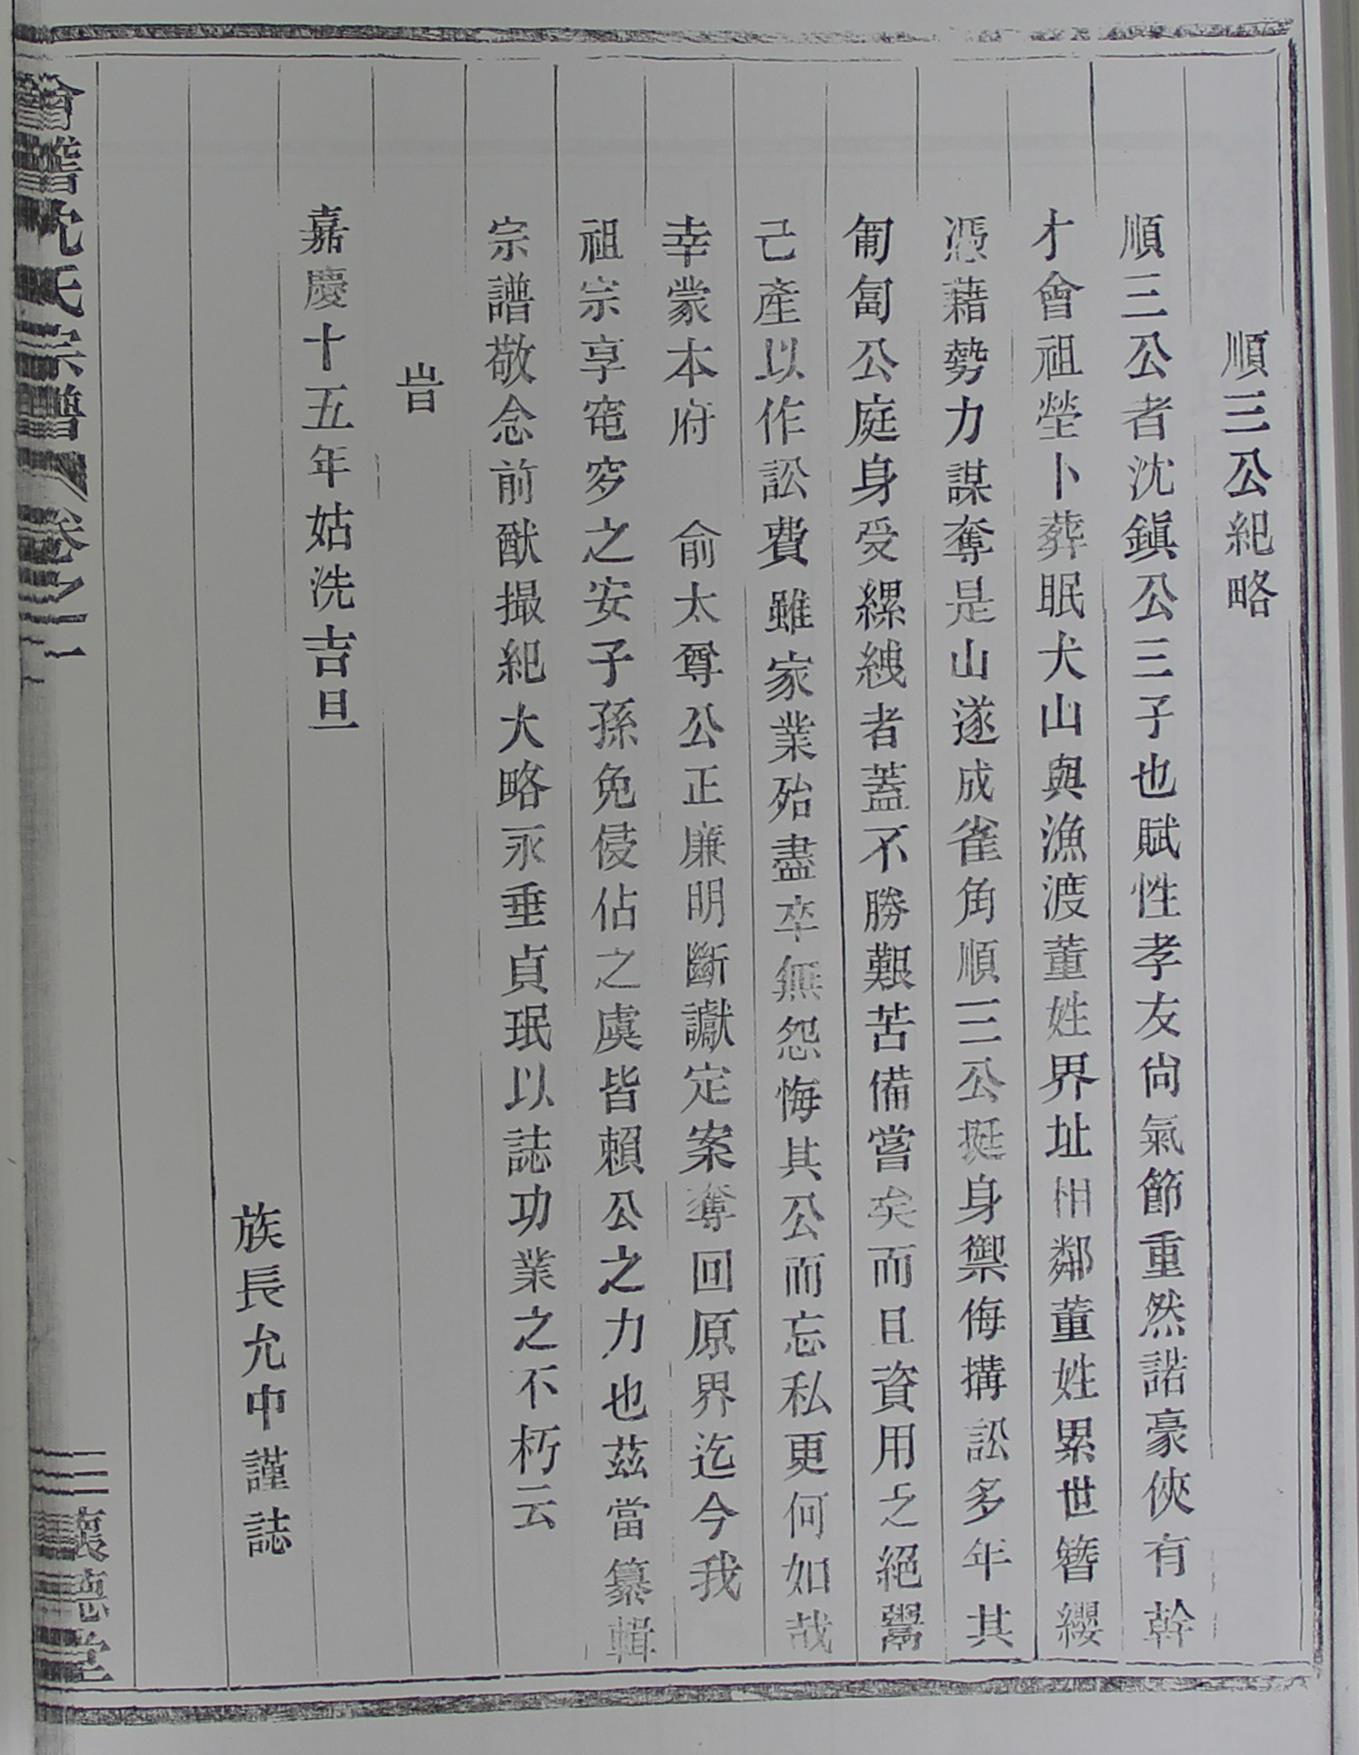 順三公紀略
順三公者沈鎭公三子也賦性孝友尙氣節重然諾豪俠有幹
才會祖塋卜葬眠犬山與漁渡董姓界址相鄰董姓累世簪纓
憑藉勢力謀奪是山遂成雀角順三公挺身禦侮搆訟多年其
匍匐公庭身受縲絏者蓋不勝艱苦備嘗矣而且資用乏絕鬻
己產以作訟費雖家業殆盡卒無怨悔其公而忘私更何如哉
幸蒙本府　俞太尊公正廉明斷讞定案奪回原界迄今我
祖宗享窀穸之安子孫免侵佔之虞皆賴公之力也茲當纂輯
宗譜敬念前猷撮紀大略永垂貞珉以誌功業之不朽云
旹
嘉慶十五年姑洗吉旦
族長允中謹誌
會稽沈氏宗譜 卷之一
三 懷德堂